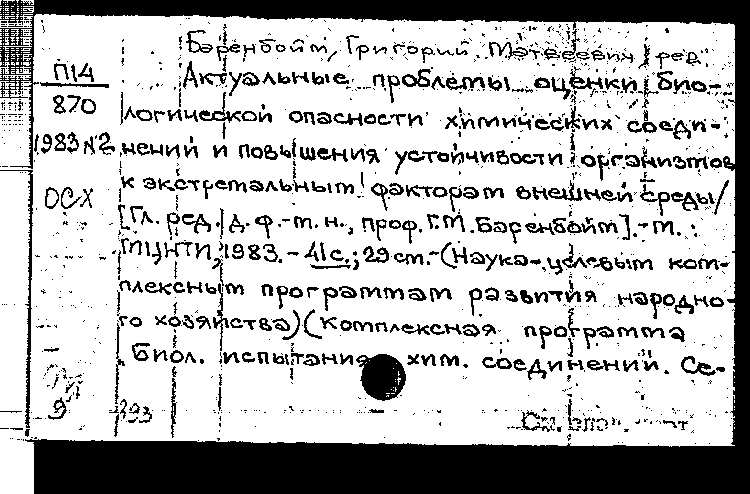 Баренбойм, Григорий Матвеевич, ред.
П14 Актуальные проблемы оценки био-
870 логической опасности химических соеди-
1983 №2 нений и повышения устойчивости организмов
ОСХ к экстремальным факторам внешней среды/
[Гл. ред. д.ф.-м.н., проф. Г.М. Баренбойм].-М.:
МЦНТИ, 1983.- 41с.; 29см.-(Наука-целевым ком-
плексным программам развития народно-
го хозяйства)(Комплексная программа
„Биол. испытания хим. соединений. Се-
9 393 См. след.